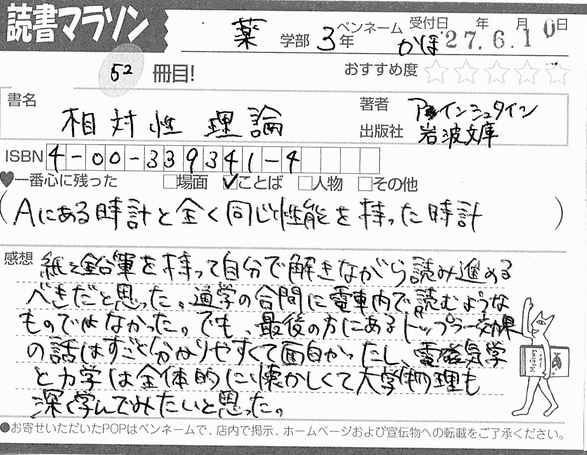 読書マラソン
薬 学部 3年 ペンネーム かほ 受付日 27年6.月10日
52 冊目! おすすめ度 ☆☆☆☆☆
書名 相対性理論 著者 アインシュタイン
出版社 岩波文庫
ISBN 4-00-339341-4
♥一番心に残った □場面 ☑ことば □人物 □その他
(Aにある時計と全く同じ性能を持った時計)
感想 紙と鉛筆を持って自分で解きながら読み進める
べきだと思った。通学の合間に電車内で読むような
ものではなかった。でも、最後の方にあるドップラー効果
の話はすごく分かりやすくて面白かったし、電磁気学
と力学は全体的に懐かしくて大学物理も
深く学んでみたいと思った。
●お寄せいただいたPOPはペンネームで、店内で掲示、ホームページおよび宣伝物への転載をご了承ください。